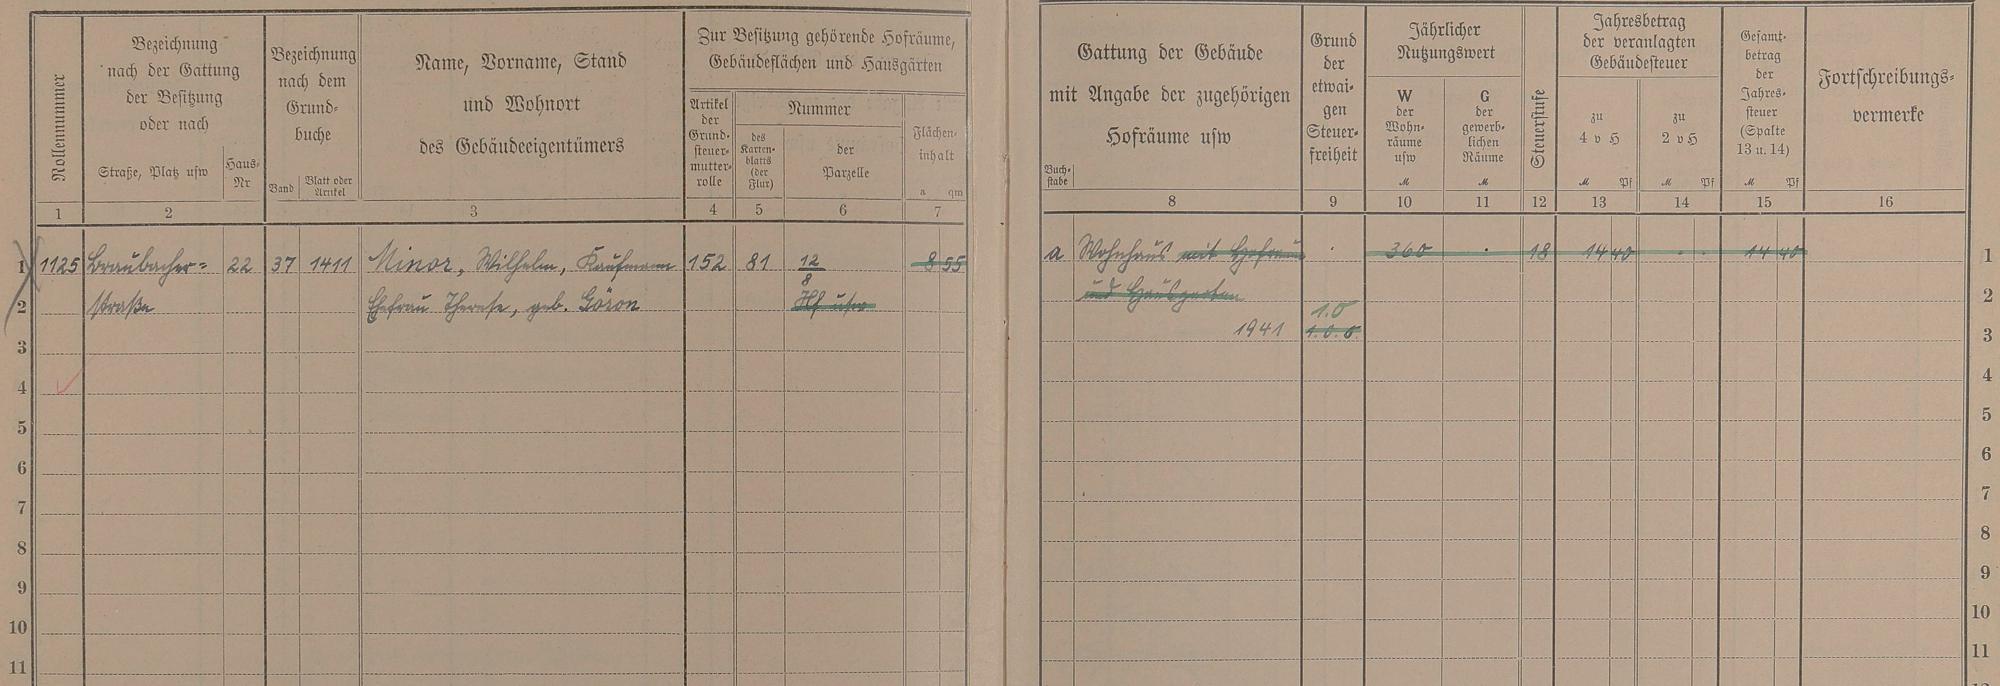 Rollennummer
Bezeichnung
nach der Gattung
der Besitzung
oder nach
Straße, Platz usw
Haus-
Nr
Bezeichnung
nach dem
Grund-
buche
Band
Blatt oder
Artikel
Name, Vorname, Stand
und Wohnort
des Gebäudeeigentümers
Zur Besitzung gehörende Hofräume,
Gebäudeflächen und Hausgärten
Artikel
der
Grund-
steuer-
mutter-
rolle
Nummer
des
Karten-
blatts
(der
Flur)
der
Parzelle
Flächen-
inhalt
a qm
1 2 3 4 5 6 7
1 1125 Braubacher= 22 37 1411 Minor, Wilhelm, Kaufmann 152 81 12/8 8 55
2 straße Ehefrau Therese, geb. Hf usw
3
4
5
6
7
8
9
10
11
Gattung der Gebäude
mit Angabe der zugehörigen
Hofräume usw
Buch-
stabe
Grund
der
etwai-
gen
Steuer-
freiheit
Jährlicher
Nutzungswert
W
der
Wohn-
räume
usw
M
G
der
gewerb-
lichen
Räume
M
Steuerstufe
Jahresbetrag
der veranlagten
Gebäudesteuer
zu
4 v H
M Pf
zu
2 v H
M Pf
Gesamt-
betrag
der
Jahres-
steuer
(Spalte
13 u. 14)
M Pf
Fortschreibungs-
vermerke
8 9 10 11 12 13 14 15 16
a Wohnhaus mit Hofraum · 360 · 18 14 40 · · 14 40 1
und Hausgarten 2
1941 3
4
5
6
7
8
9
10
11